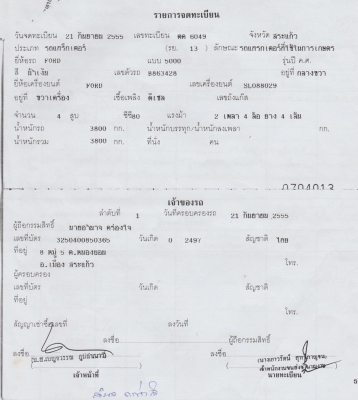 รายการจดทะเบียน
วันจดทะเบียน 21 กันยายน 2555 เลขทะเบียน ตค 6049 จังหวัด สระแก้ว
ประเภท รถแทร็กเตอร์ (รย. 13 ) ลักษณะ รถแทรกเตอร์ที่ใช้ในการเกษตร
ยี่ห้อรถ FORD แบบ 5000 รุ่นปี ค.ศ.
สี ฟ้า,เงิน เลขตัวรถ B863428 อยู่ที่ กลางขวา
ยี่ห้อเครื่องยนต์ FORD เลขเครื่องยนต์ SL088029
อยู่ที่ ขวาเครื่อง เชื้อเพลิง ดีเซล เลขถังแก๊ส
จำนวน 4 สูบ ซีซี 80 แรงม้า 2 เพลา 4 ล้อ ยาง 4 เส้น
น้ำหนักรถ 3800 กก. น้ำหนักบรรทุก/น้ำหนักลงเพลา กก.
น้ำหนักรวม 3800 กก. ที่นั่ง คน
0704013
เจ้าของรถ
ลำดับที่ 1 วันที่ครอบครองรถ 21 กันยายน 2555
ผู้ถือกรรมสิทธิ์ นายอำนาจ คร่องใจ
เลขที่บัตร 3250400850365 วันเกิด 0 2497 สัญชาติ ไทย
ที่อยู่ 8 หมู่ 5 ต.หนองบอน
อ.เมือง สระแก้ว โทร.
ผู้ครอบครอง
เลขที่บัตร วันเกิด สัญชาติ
ที่อยู่ โทร.
สัญญาเช่าซื้อเลขที่ ลงวันที่
ลงชื่อ ผู้ถือกรรมสิทธิ์
ลงชื่อ ลงชื่อ
เจ้าหน้าที่ นายทะเบียน
5